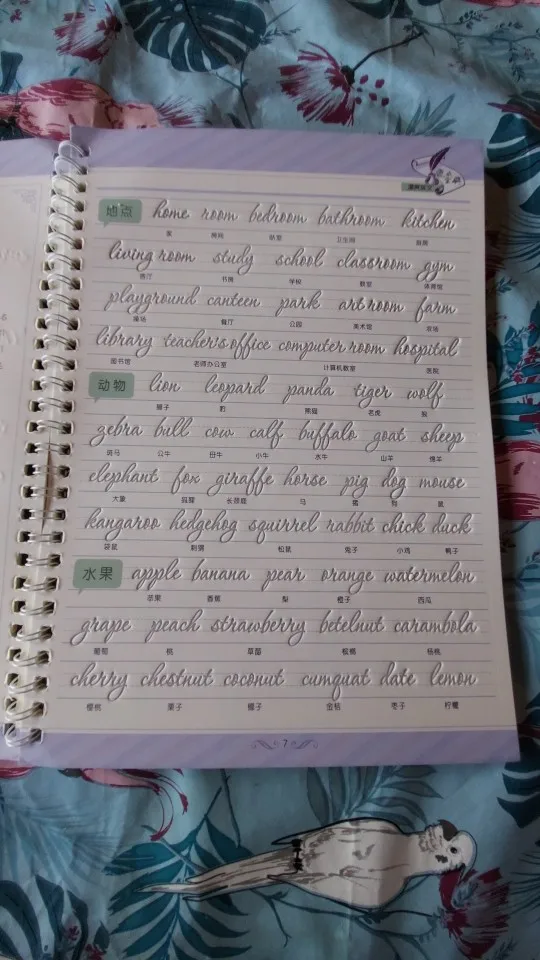 地点 home room bedroom bathroom kitchen
家 房间 卧室 卫生间 厨房
living room study school classroom gym
客厅 书房 学校 教室 体育馆
playground canteen park art room farm
操场 餐厅 公园 美术馆 农场
library teacher's office computer room hospital
图书馆 老师办公室 计算机教室 医院
动物 lion leopard panda tiger wolf
狮子 豹 熊猫 老虎 狼
zebra bull cow calf buffalo goat sheep
斑马 公牛 母牛 小牛 水牛 山羊 绵羊
elephant fox giraffe horse pig dog mouse
大象 狐狸 长颈鹿 马 猪 狗 鼠
kangaroo hedgehog squirrel rabbit chick duck
袋鼠 刺猬 松鼠 兔子 小鸡 鸭子
水果 apple banana pear orange watermelon
苹果 香蕉 梨 橙子 西瓜
grape peach strawberry betelnut carambola
葡萄 桃 草莓 槟榔 杨桃
cherry chestnut coconut cumquat date lemon
樱桃 栗子 椰子 金桔 枣子 柠檬
7